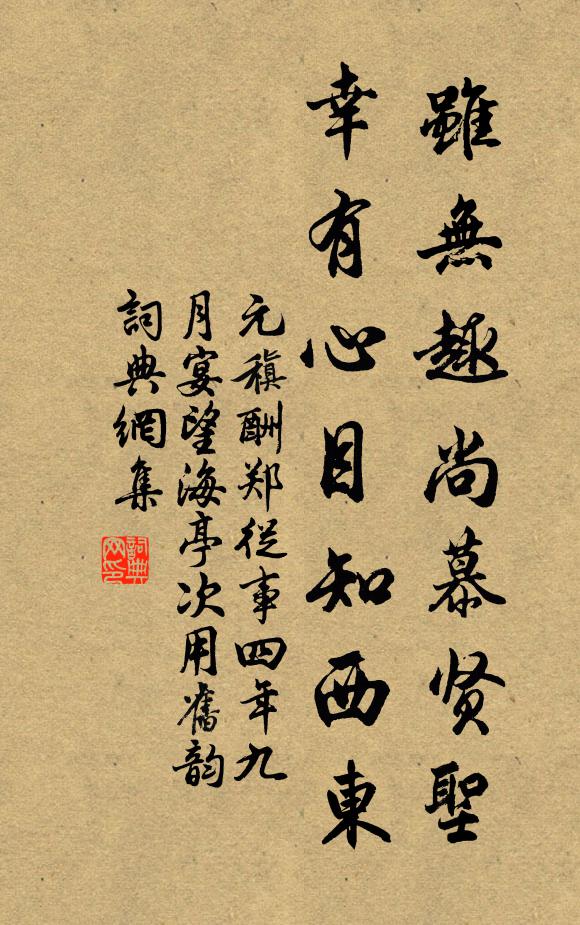 雖無趣尚慕贤聖
幸有心目知西東
元稹酬郑從事四年九
月宴望海亭次用舊韵
詞典網集
詞典
网印